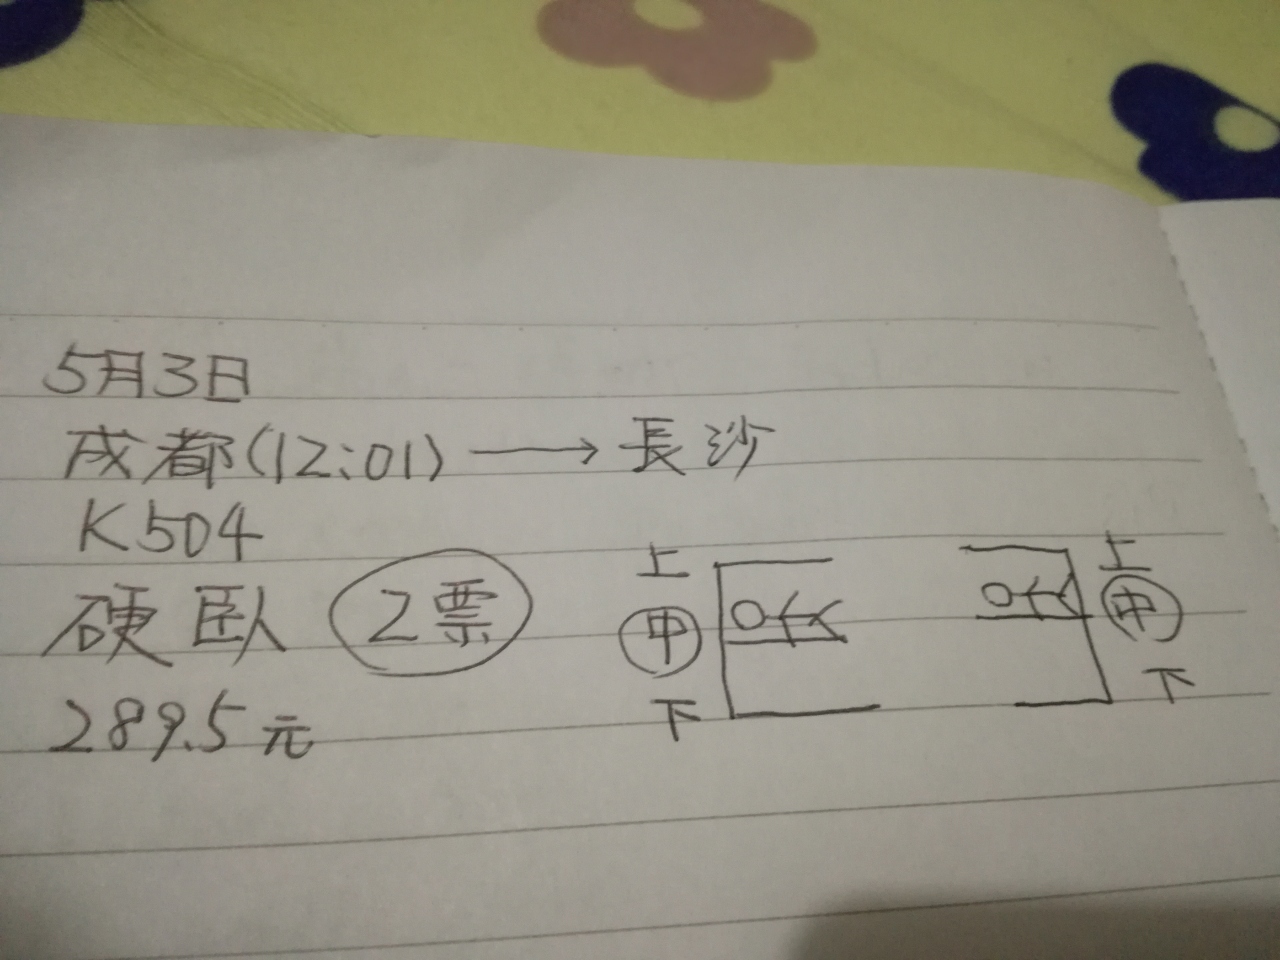 5月3日
成都(12:01)→長沙
K504
硬臥 2票
289.5元
上
中
下
上
中
下